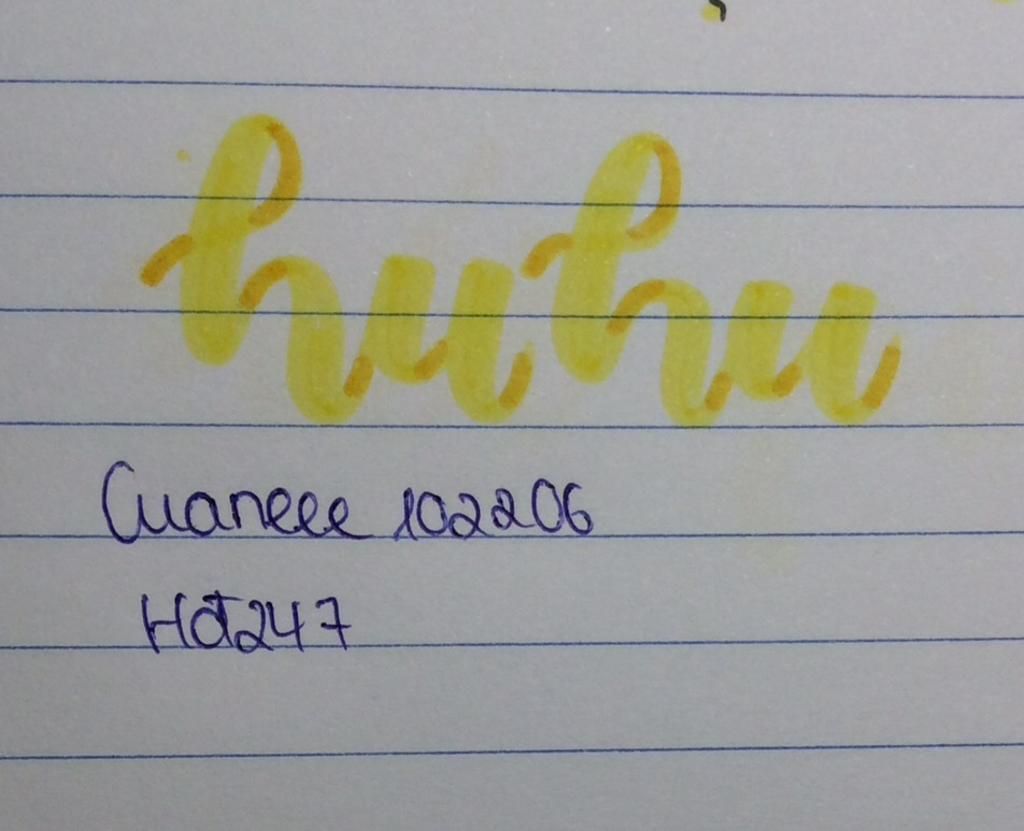 huhu
Cuaneee 102206
Hot247